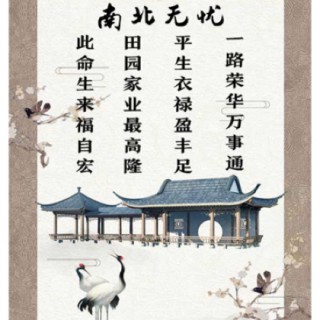 南北无忧
此命生来福自宏
田园家业最高隆
平生衣禄盈丰足
一路荣华万事通